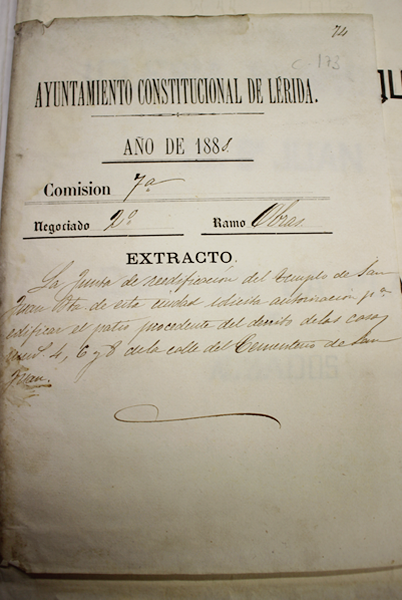 74
C-173
AYUNTAMIENTO CONSTITUCIONAL DE LÉRIDA.
AÑO DE 1888
Comision 7ª
Negociado 2º Ramo Obras
EXTRACTO.
La Junta de reedificación del templo de San
Juan Bta de esta ciudad solicita autorizacion pª
edificar el patio procedente del derribo de las casas
nums 4, 6 y 8 de la calle del Cementerio de San
Juan.